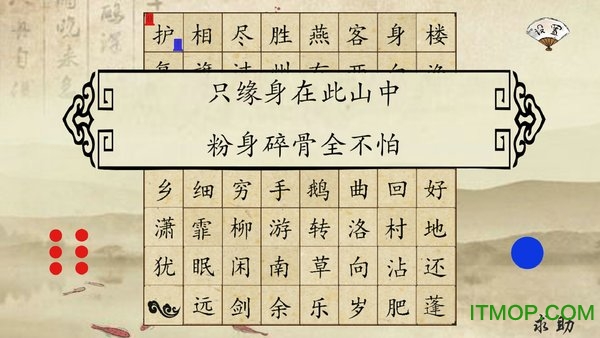 护 相 尽 胜 燕 客 身 楼
设置
只缘身在此山中
粉身碎骨全不怕
乡 细 穷 手 鹅 曲 回 好
潇 霏 柳 游 转 洛 村 地
犹 眠 闲 南 草 向 沾 还
远 剑 余 乐 岁 肥 蓬
ITMOP.COM
求助